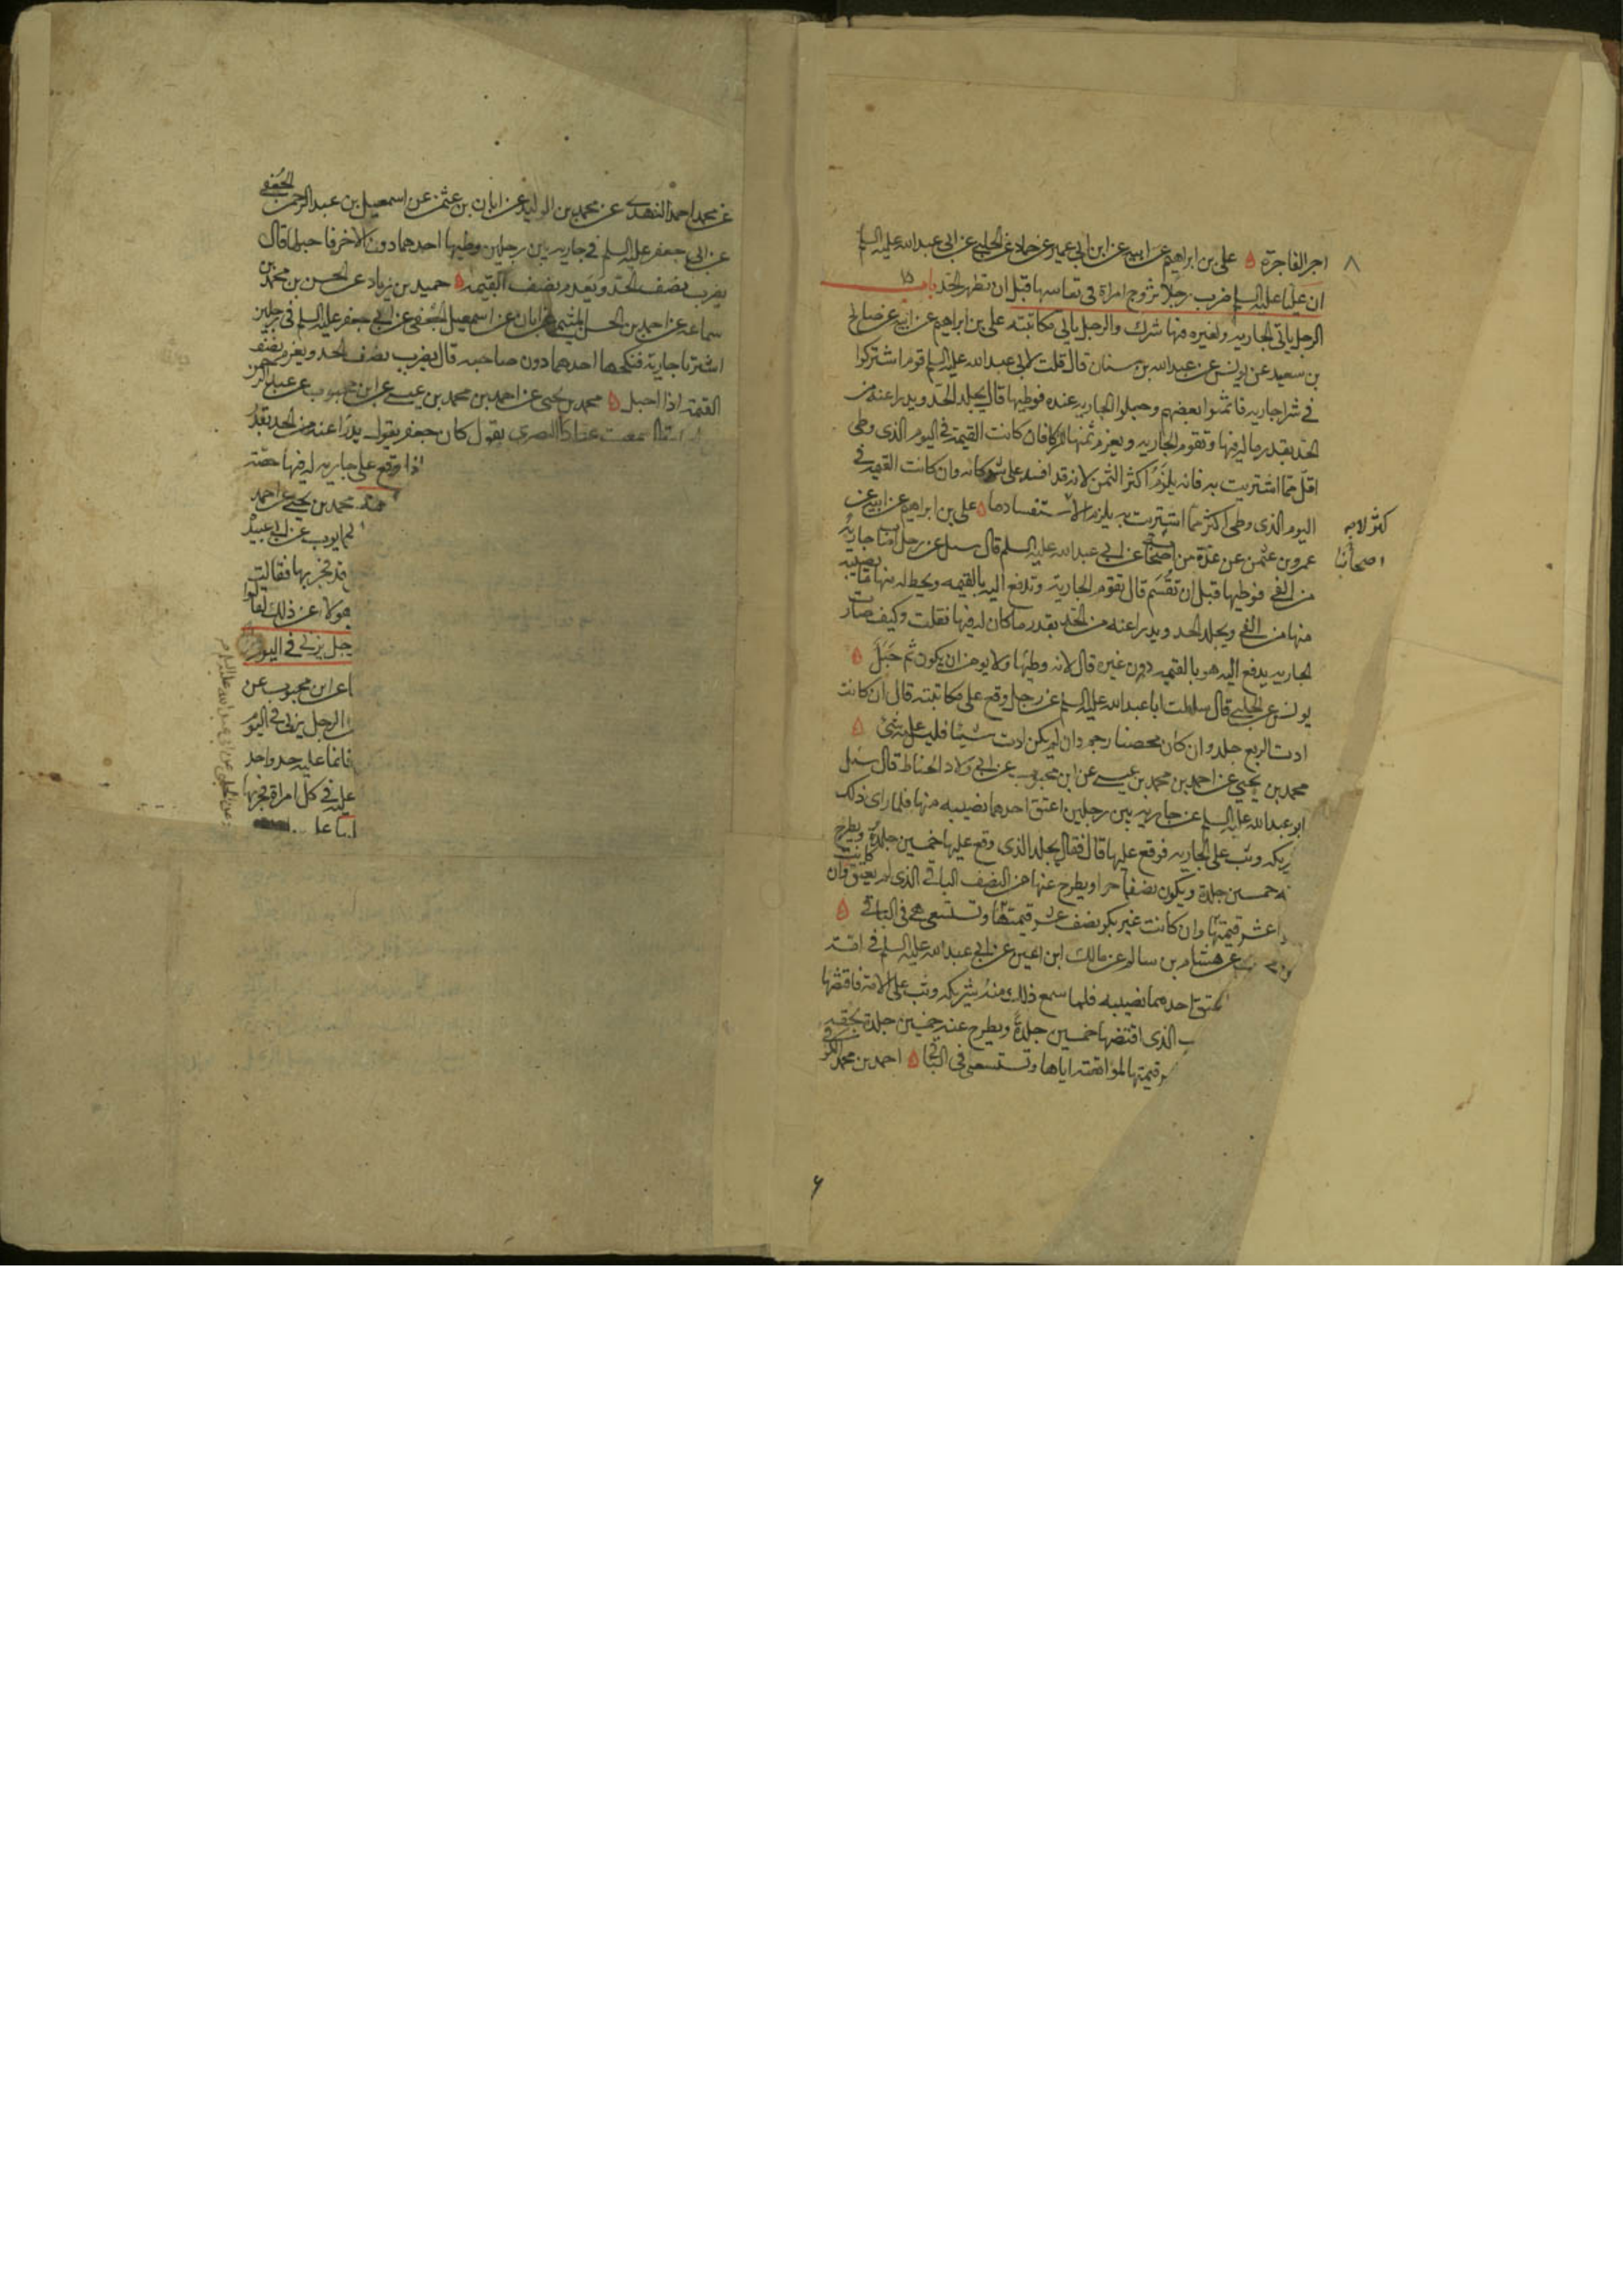 اجر الفاجرة ۵ علي بن ابراهيم عن ابيه عن ابن ابي عمير عن حماد عن الحلبي عن ابي عبدالله عليه السلم
ان عليا عليه السلم ضرب رجلا تزوج امراة في نفاسها قبل ان تطهر الحد باب
الرجل ياتي الجاريه ولغيره فيها شرك والرجل ياتي مكاتبته علي بن ابراهيم عن ابيه عن صالح
بن سعيد عن يونس عن عبدالله بن سنان قال قلت لابي عبدالله عليه السلم قوم اشتركوا
في شرا جاريه فائتمنوا بعضهم وجعلوا الجاريه عنده فوطيها قال يجلد الحد ويدرا عنه من
الحد بقدر ماله فيها وتقوم الجاريه ويغرم ثمنها للشركا فان كانت القيمة في اليوم الذى وطى
اقل مما اشتريت به فانه يلزم اكثر الثمن لانه قد افسد على شركائه وان كانت القيمة في
اليوم الذى وطى اكثر مما اشتريت به يلزم الاكثر لاستفسادها ۵ علي بن ابراهيم عن ابيه عن
عمرو بن عثمن عن عدة من اصحابنا عن ابي عبدالله عليه السلم قال سئل عن رجل اصاب جارية
من الفي فوطيها قبل ان تقسم قال تقوم الجارية وتدفع اليه بالقيمه ويحط له منها ما يصيبه
منها من الفي ويجلد الحد ويدرا عنه من الحد بقدر ما كان له فيها فقلت وكيف صارت
الجاريه يدفع اليه هو بالقيمه دون غيره قال لانه وطيها ولا يومن ان يكون ثم حبل ۵
يونس عن الحلبي قال سالت ابا عبدالله عليه السلم عن رجل وقع على مكاتبته قال ان كانت
ادت الربع جلد وان كان محصنا رجم وان لم يكن ادت شيئا فليس عليه شئ ۵
محمد بن يحيي عن احمد بن محمد بن عيسى عن ابن محبوب عن ابي ولاد الحناط قال سئل
ابو عبدالله عليه السلم عن جاريه بين رجلين اعتق احدهما نصيبه منها فلما راى ذلك
ريكه وثب على الجاريه فوقع عليها قال فقال يجلد الذى وقع عليها خمسين جلدة ويطرح
نه خمسين جلدة ويكون نصفها حرا ويطرح عنها من النصف الباقي الذى لم يعتق وان كانت
عشر قيمتها وان كانت غير بكر نصف عشر قيمتها وتستسعى هي في الباقي ۵
عن هشام بن سالم عن مالك ابن اعين عن ابي عبدالله عليه السلم في امة
عتق احدهما نصيبه فلما سمع ذلك منه شريكه وثب على الامة فاقتضها
ب الذى اقتضها خمسين جلدة ويطرح عنه خمسين جلدة بحقه
ر قيمتها لمواقعته اياها وتستسعى في الباقي ۵ احمد بن محمد الكوفي
كثر لا به
اصحابنا
عن محمد احمد النهدى عن محمد بن الوليد عن ابان بن عثمن عن اسمعيل بن عبدالرحمن الجعفي
عن ابي جعفر عليه السلم في جاريه بين رجلين وطيها احدهما دون الاخر فاحبلها قال
يضرب نصف الحد ويغرم نصف القيمه ۵ حميد بن زياد عن الحسن بن محمد بن
سماعه عن احمد بن الحسن الميثمي عن ابان عن اسمعيل الجعفي عن ابي جعفر عليه السلم في رجلين
اشتريا جارية فنكحها احدهما دون صاحبه قال يضرب نصف الحد ويغرم نصف
القيمة اذا احبل ۵ محمد بن يحيى عن احمد بن محمد بن عيسى عن ابن محبوب عن عبدالرحمن
قال سمعت عباد البصري يقول كان جعفر يقول يدرا عنه من الحد بقدر
اذا وقع على جاريه له فيها حصته
محمد بن يحيى عن احمد
ابي ايوب عن ابي عبيدة
قد فجر بها فقالت
هولا عن ذلك لقالوا
جل يزني في اليوم
عن ابن محبوب عن
الرجل يزني في اليوم
فانما عليه حد واحد
عليه في كل امراة فجر بها